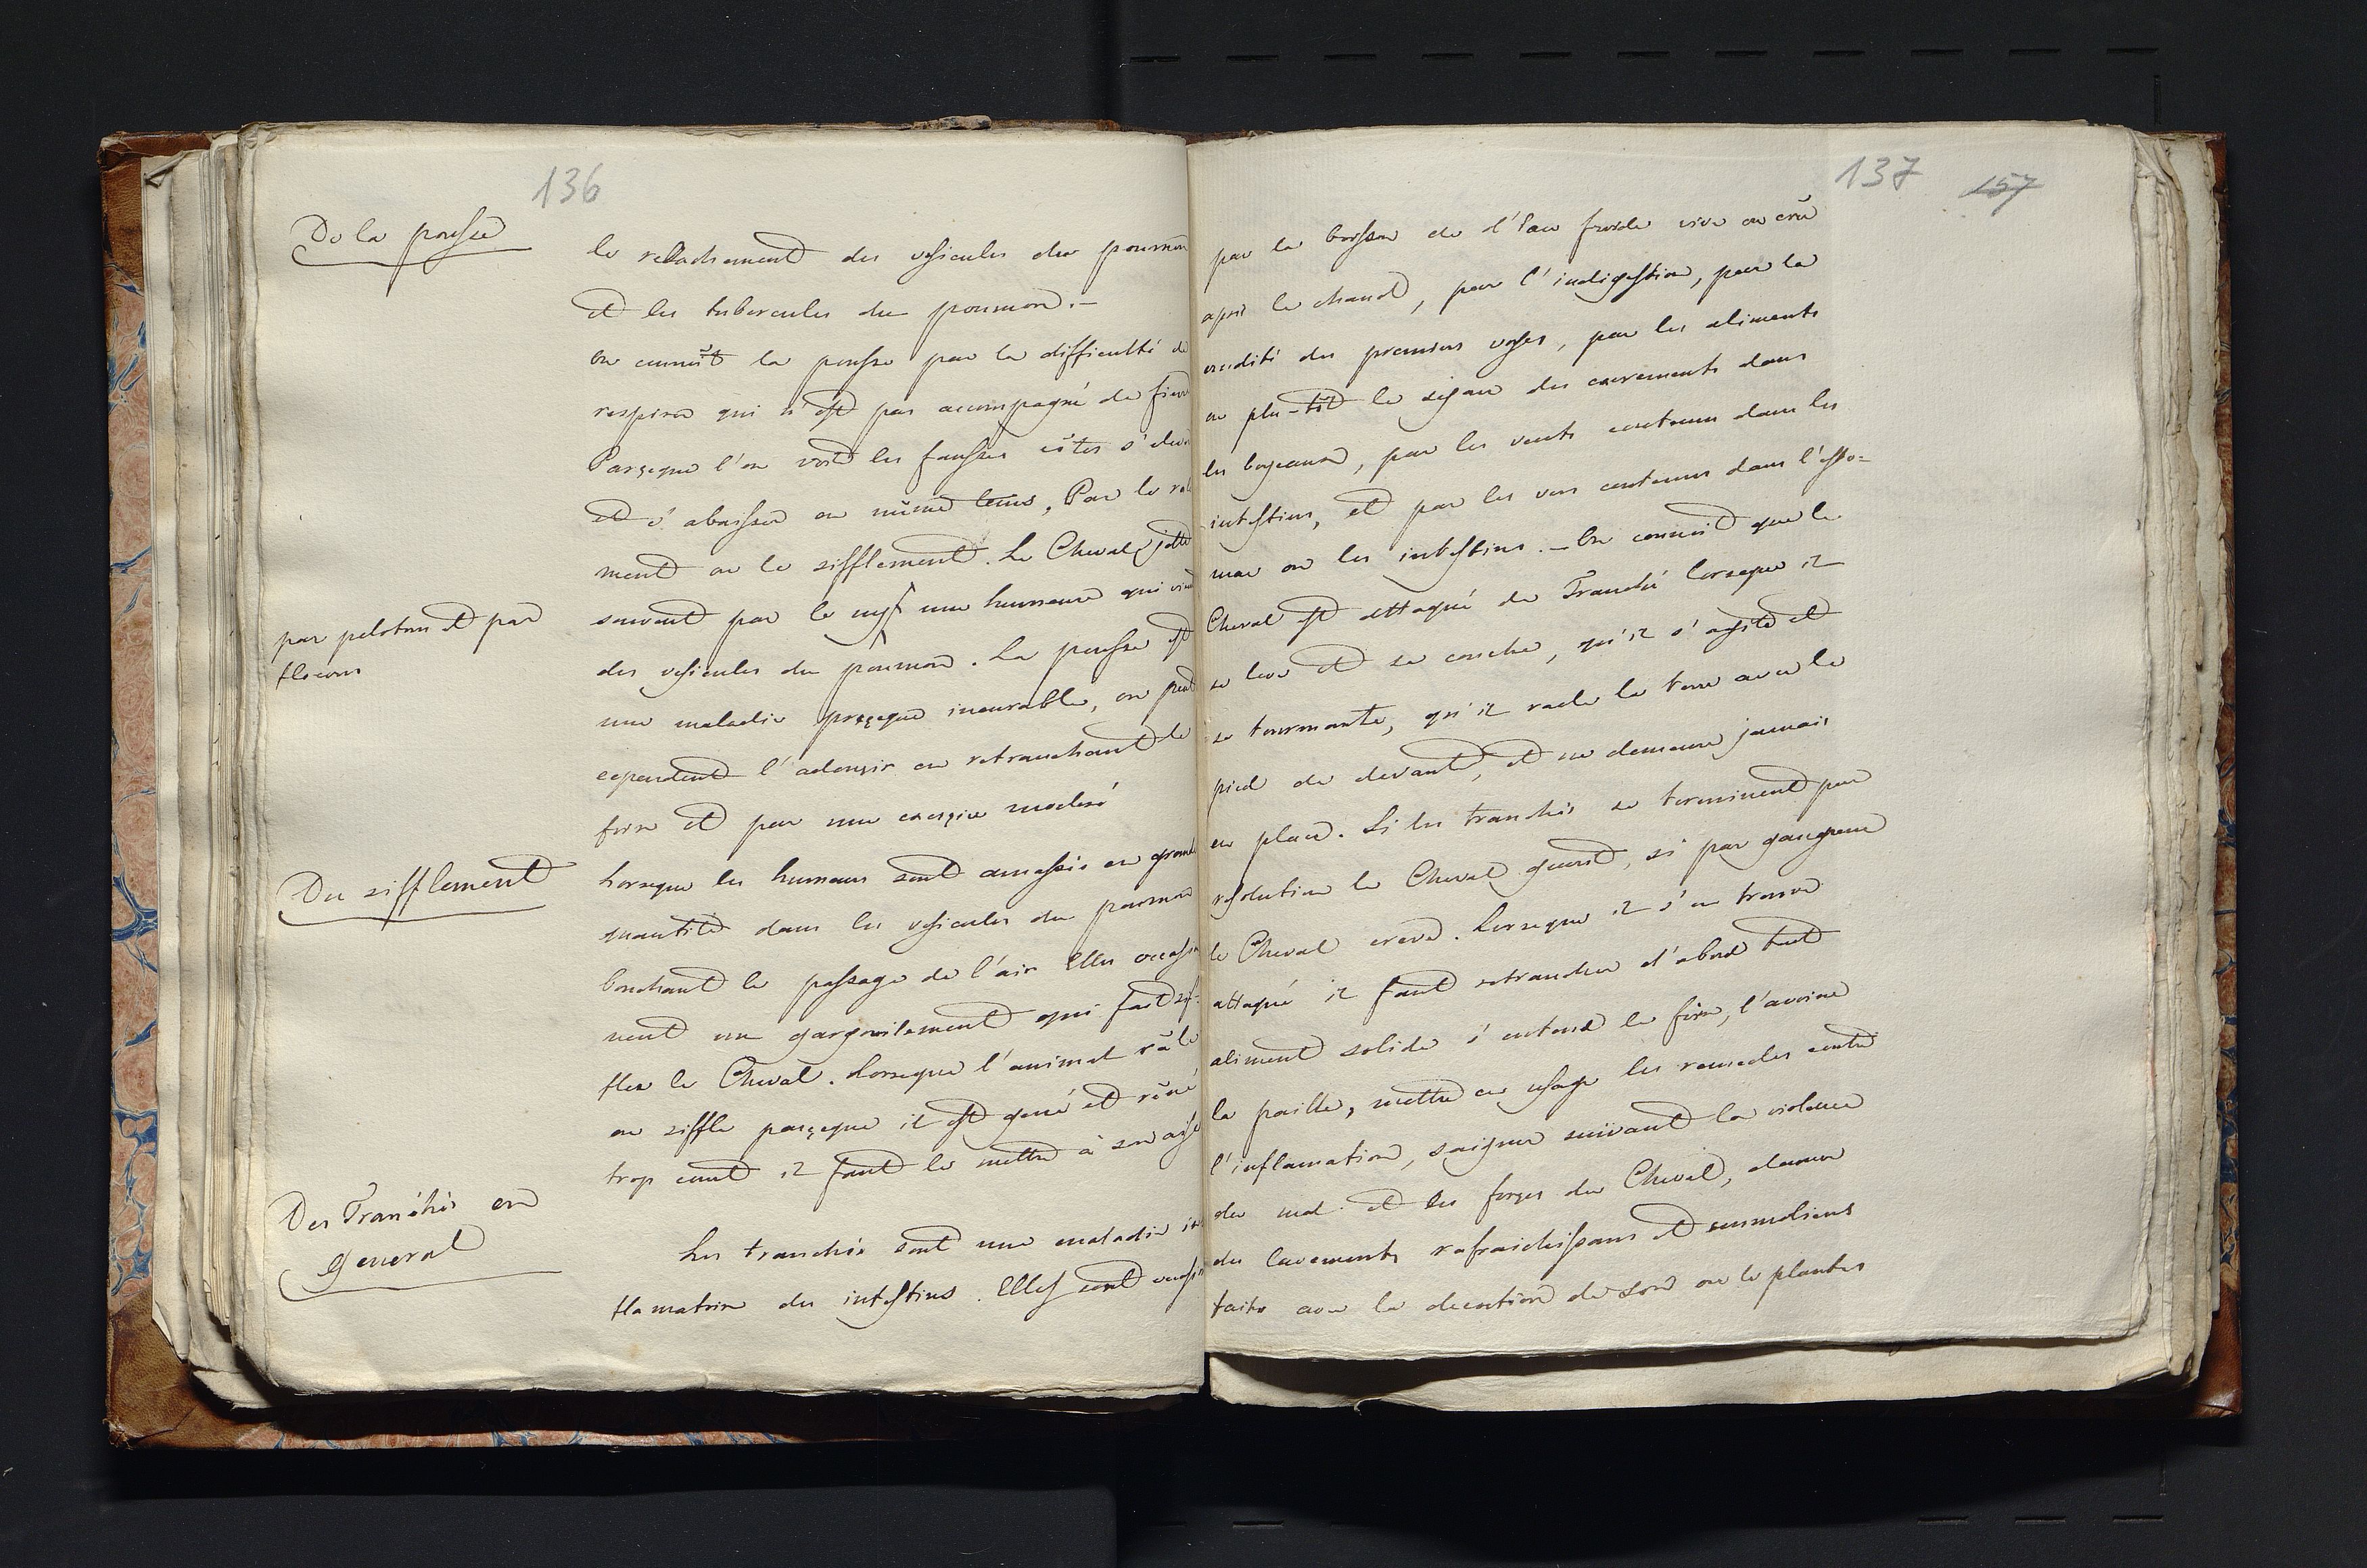 136
De la pousse
le relachement des vesicules du poumon
et les tubercules du poumon.-
on connoît la pousse par la difficulté de
respirer qui n'est pas accompagné de fievre
Parçeque l'on voit les fausses côtes s'elever
et s'abaisser en même tems, Par le rale
ment ou le sifflement. Le Cheval jette
souvent par le nez une humeure qui vient
par peloton et par
flocons
des vesicules du poumon. La pousse est
une maladie presque incurable, on peut
cependent l'adouçir en retranchant le
foin et par une exerçice moderé
Du sifflement
Lorseque les humeurs sont amassés en grande
quantité dans les vesicules du poumon
bouchant le passage de l'air Elles occasion
nent un gargouilement qui fait sif-
fler le Cheval. Lorseque l'animal râle
ou siffle parçeque il est gené et rêné
trop court il faut le mettre à son aise
Des Tranchés en
General
Les tranchés sont une maladie in
flamatoire des intestins. Elles sont occasion
137
157
par la boisson de l'eau froide vive ou crûe
après le chaud, par l'indigestion, par la
crudité des premiers voyes, par les aliments
ou plu-tôt le sejour des excrements dans
les boyeaux, par les vents contenus dans les
intestins, et par les vers contenus dans l'esto=
mac ou les intestins.- On connoit que le
Cheval est attaqué de Tranché lorseque il
se leve et se couche, qu'il s'agite et
se tourmente, qu'il racle la terre avec le
pied de devant, et ne demeure jamais
en place. Si les tranchés se terminent par
resolution le Cheval guerit, si par gangrene
le Cheval creve. Lorseque il s'en trouve
attaqué il faut retrancher d'abord tout
aliment solide s'entend le foin, l'avoine
la paille, mettre en usage les remedes contre
l'inflamation, saigner suivant la violence
du mal et les forçes du Cheval, donner
des lavements rafraichissans et emmoliens
faits avec la decoction de son ou le plantes